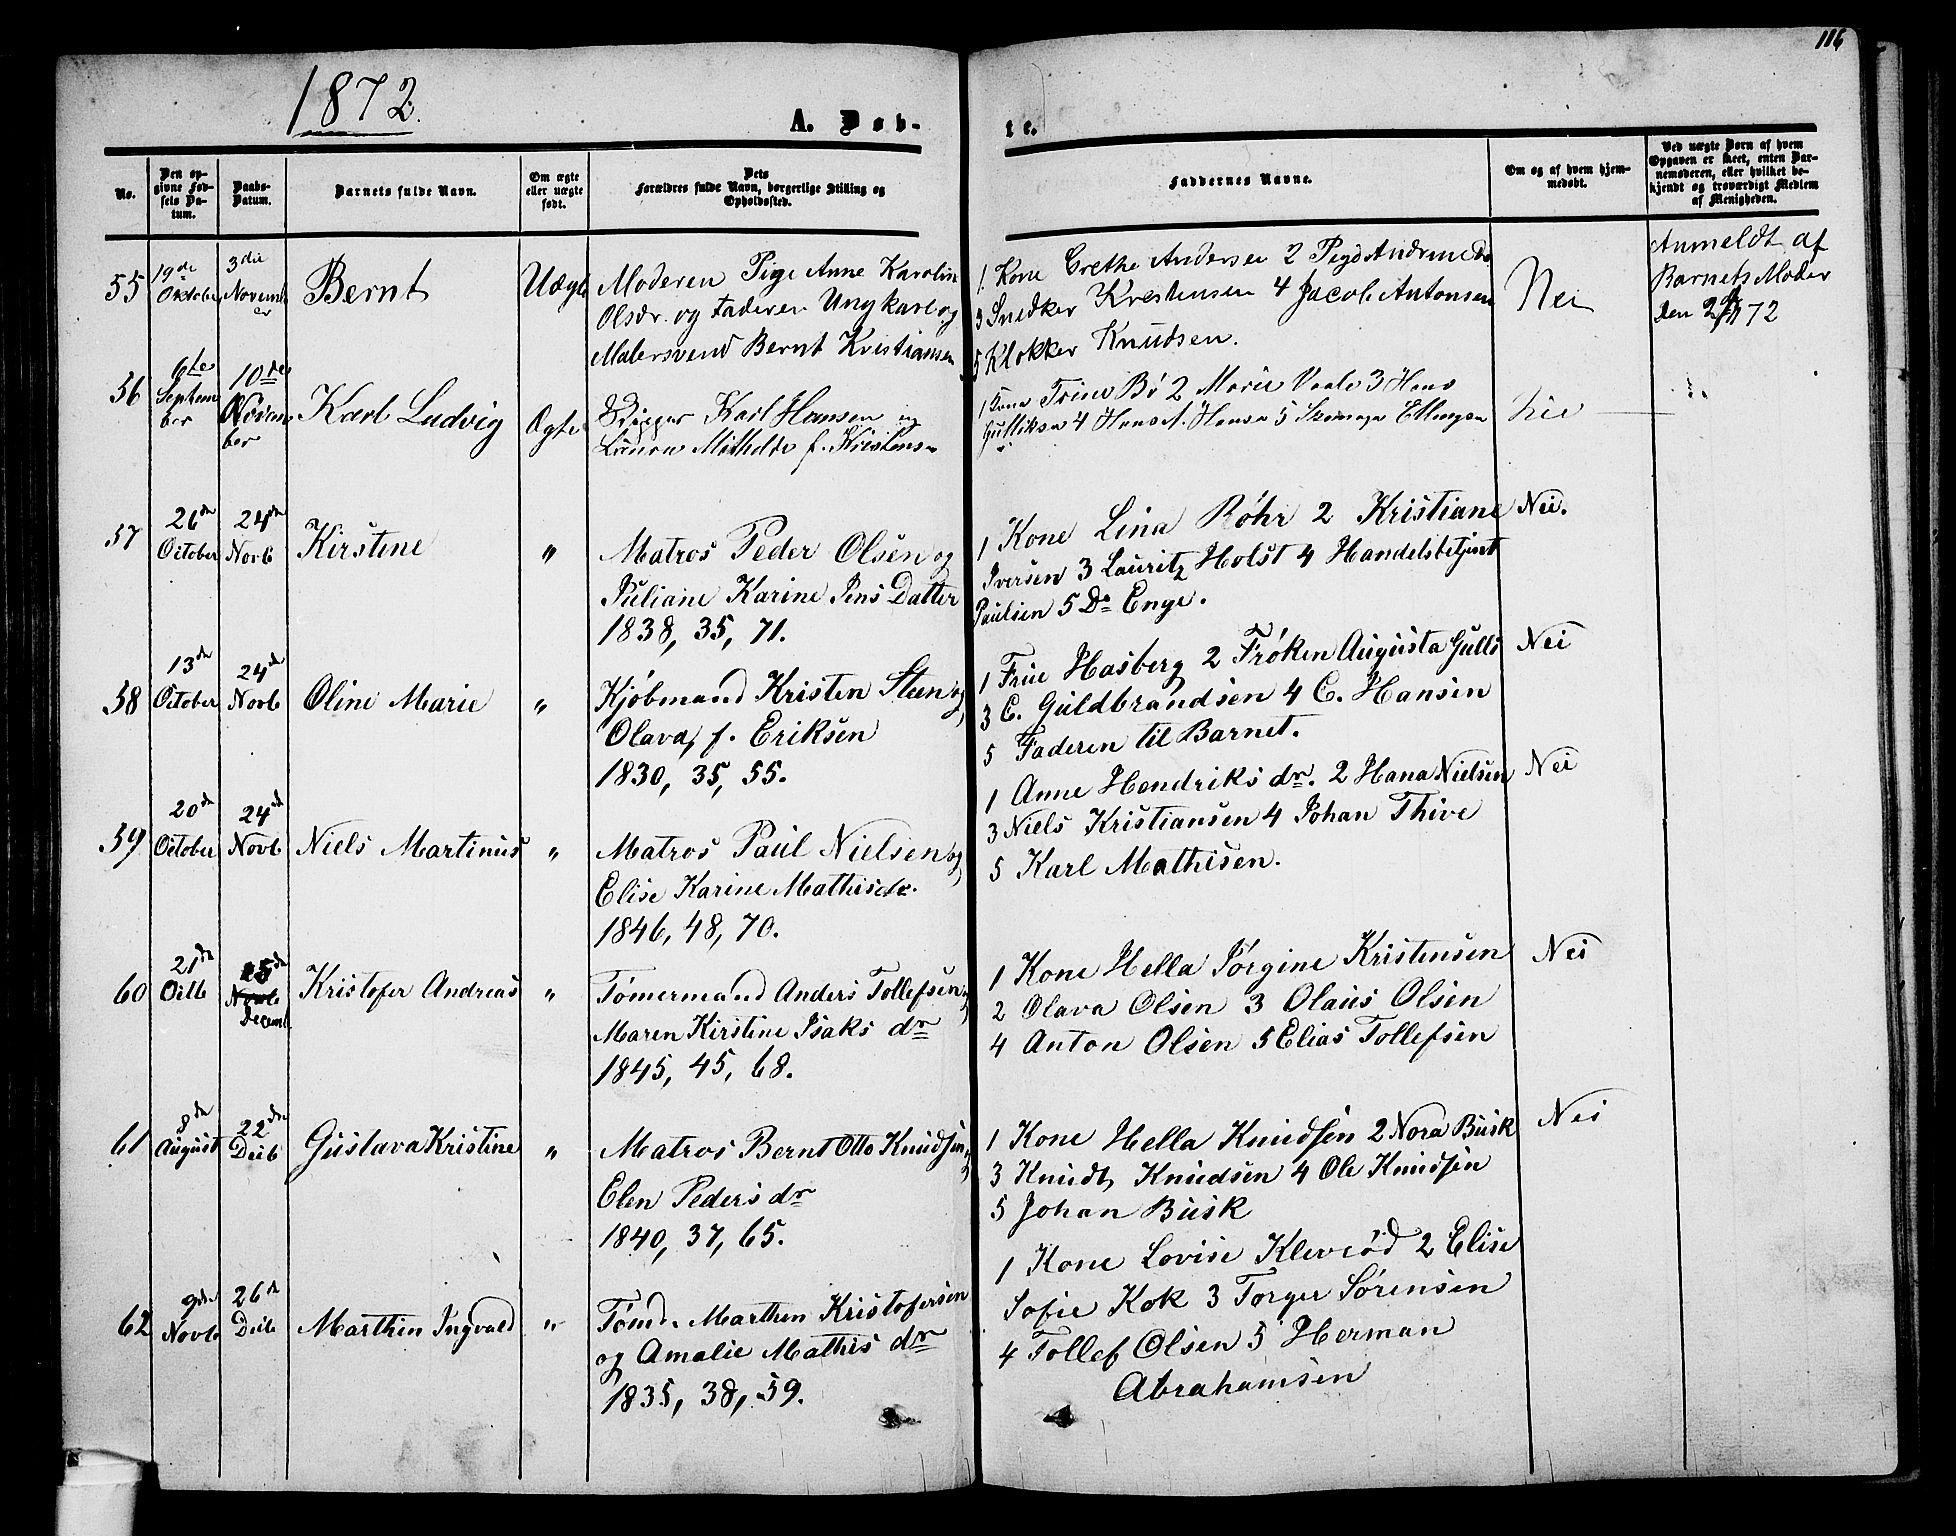 116
1872.
A. Døb-
te.
No.
Den op-
givne Fød-
sels Da-
tum.
Daabs-
Datum.
Barnets fulde Navn.
Om ægte
eller uægte
født.
Dets
Forældres fulde Navn, borgerlige Stilling og
Opholdssted.
Faddernes Navne.
Om og af hvem hjem-
medøbt.
Ved uægte Børn af hvem
Opgaven er skeet, enten Bar-
nemoderen, eller hvilket be-
kjendt og troværdigt Medlem
af Menigheden.
55
19de
Oktober
3die
Novemb
er
Bernt
Uægte
Moderen Pige Anne Karolin
Olsdr. og Faderen Ungkarl og
Malersvend Bernt Kristiansen
1. Kone Grethe Andersen 2 Pige
3 Snedker Krestensen 4 Jacob Antonsen
5 Klokker Knudsen.
Nei
Anmeldt af
Barnets Moder
den 72
56
6te
Septem
ber
10de
Novem
ber
Karl Ludvig
Ægte
Rigger Karl Hansen og
Laura Mathilde f. Kristens
1 Kone Trine Bø 2 Marie Vaale 3 Hans
Gulliksen 4 Hans A. Hansen 5 Ellingsen
Nei
57
26de
October
24de
Novb
Kirstine
"
Matros Peder Olsen og
Juliane Karine Jens Datter
1838, 35, 71.
1 Kone Lina Røhr 2 Kristiane
Iversen 3 Lauritz Holst 4 Handelsbetjent
Paulsen 5 Do Enge.
Nei.
58
13de
October
24de
Novb
Oline Marie
"
Kjøbmand Kristen Steen og
Olava, f. Eriksen
1830, 35, 55.
1 Frue Hasberg 2 Frøken Augusta Gulls
3 C. Guldbrandsen 4 C. Hansen
5 Faderen til Barnet.
Nei
59
20de
October
24de
Novb
Niels Martinus
"
Matros Paul Nielsen og
Elise Karine Mathisdr.
1846, 48, 70.
1 Anne Hendriks dr. 2 Hana Nielsen
3 Niels Kristiansen 4 Johan Thive
5 Karl Mathisen.
Nei
60
21de
Octb
15de
Novb
Decemb
Kristofer Andreas
"
Tømermand Anders Tollefsen og
Maren Kirstine Isaks dr
1845, 45, 68.
1 Kone Hella Jørgine Kristensen
2 Olava Olsen 3 Olaus Olsen
4 Anton Olsen 5 Elias Tollefsen
Nei
61
8de
August
22de
Decb
Gustava Kristine
"
Matros Bernt Otto Knudsen og
Elen Peders dr
1840, 37, 65.
1 Kone Hella Knudsen 2 Nora Busk
3 Knudt Knudsen 4 Ole Knudsen
5 Johan Busk
Nei
62
9de
Novb
26de
Decb
Marthin Ingvald
"
Tømd. Marthen Kristofersen
og Amalie Mathis dr
1835, 38, 59.
1 Kone Lovise Kleveød 2 Elise
Sofie Kok 3 Torger Sørensen
4 Tollef Olsen 5 Herman
Abrahamsen